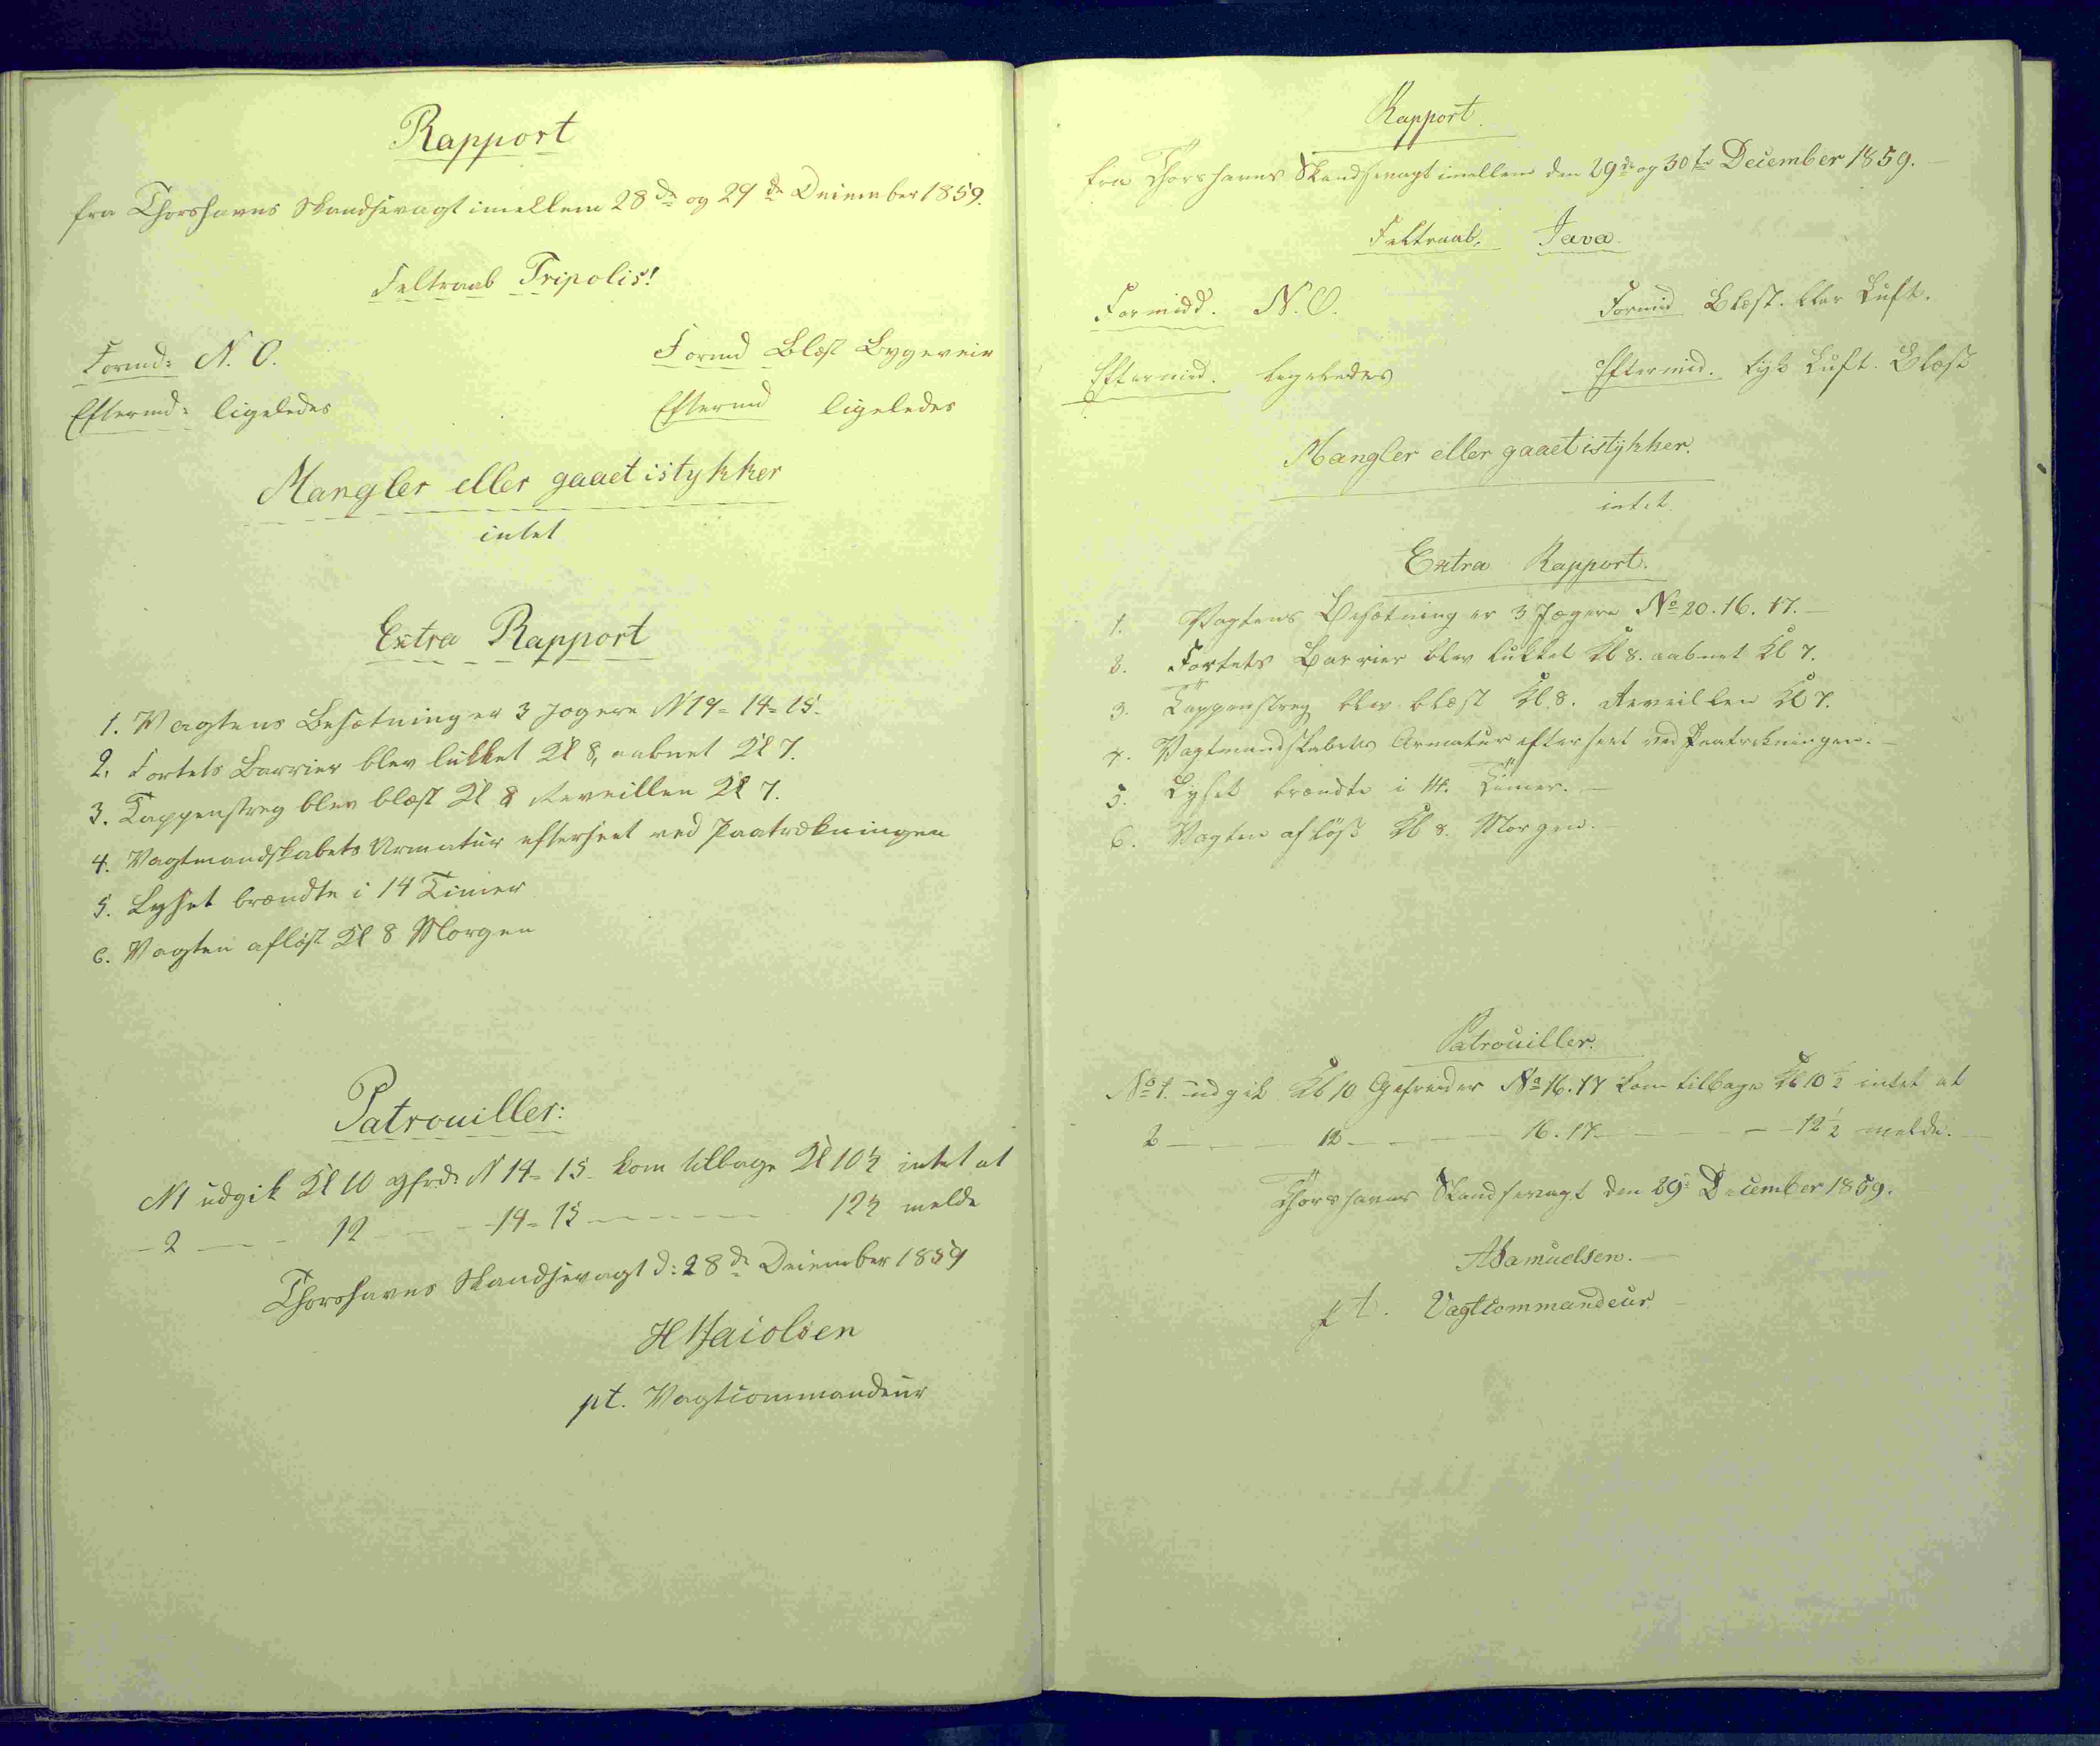 Rapport
fra Thorshavns Skandsevagt imellem 28de og 29de December 1859.
Feltraab Tripolis!
Formd: N. O.
Formd Blæst Bygeveir
Eftermd: ligeledes
Eftermd ligeledes
Mangler eller gaaet istykker
intet
Extra Rapport
1. Vagtens Besætning er 3 Jægere N 19- 14- 15.
2. Fortets Barrier blev lukket Kl 8, aabnet Kl 7.
3. Tappenstreg blev blæst Kl 8 Reveillen Kl 7.
4. Vagtmandskabets Armatur efterseet ved Paatrækningen
5. Lyset brændte i 14 Timer
6. Vagten afløst Kl 8 Morgen
Patrouiller:
N1 udgik Kl 10 Gfrd: N 14- 15- kom tilbage Kl 10½ intet at
- 2 — - 12 - - - 14- 15 - - - - - - 12½ melde
Thorshavns Skandsevagt d: 28de December 1859
pt. Vagtcommandeur
Rapport.
fra Thorshavns Skandsevagt imellem den 29de og 30te December 1859.
Feltraab. Java.
Formidd. N.O.
Formid Blæst. klar Luft.
Eftermid. ligeledes
Eftermid. tyk Luft. Blæst
Mangler eller gaaet istykker.
intet.
Extra Rapport.
1. Vagtens Besætning er 3 Jægere No 20. 16. 17.
2. Fortets Barrier blev lukket Kl 8. aabnet Kl 7.
3. Tappenstreg blev blæst Kl. 8. Reveillen Kl 7.
4. Vagtmandskabets Armatur efterseet ved Paatrækningen.
5. Lyset brændte i 14. Timer.
6. Vagten afløst Kl 8. Morgen.
Patrouiller.
No 1. udgik Kl 10 Gefreider No 16. 17 kom tilbage Kl 10½ intet at
2 — 12 — 16. 17 — 12½ melde.
Thorshavns Skandsevagt den 29de December 1859.
ASamuelsen.
pt. Vagtcommandeur